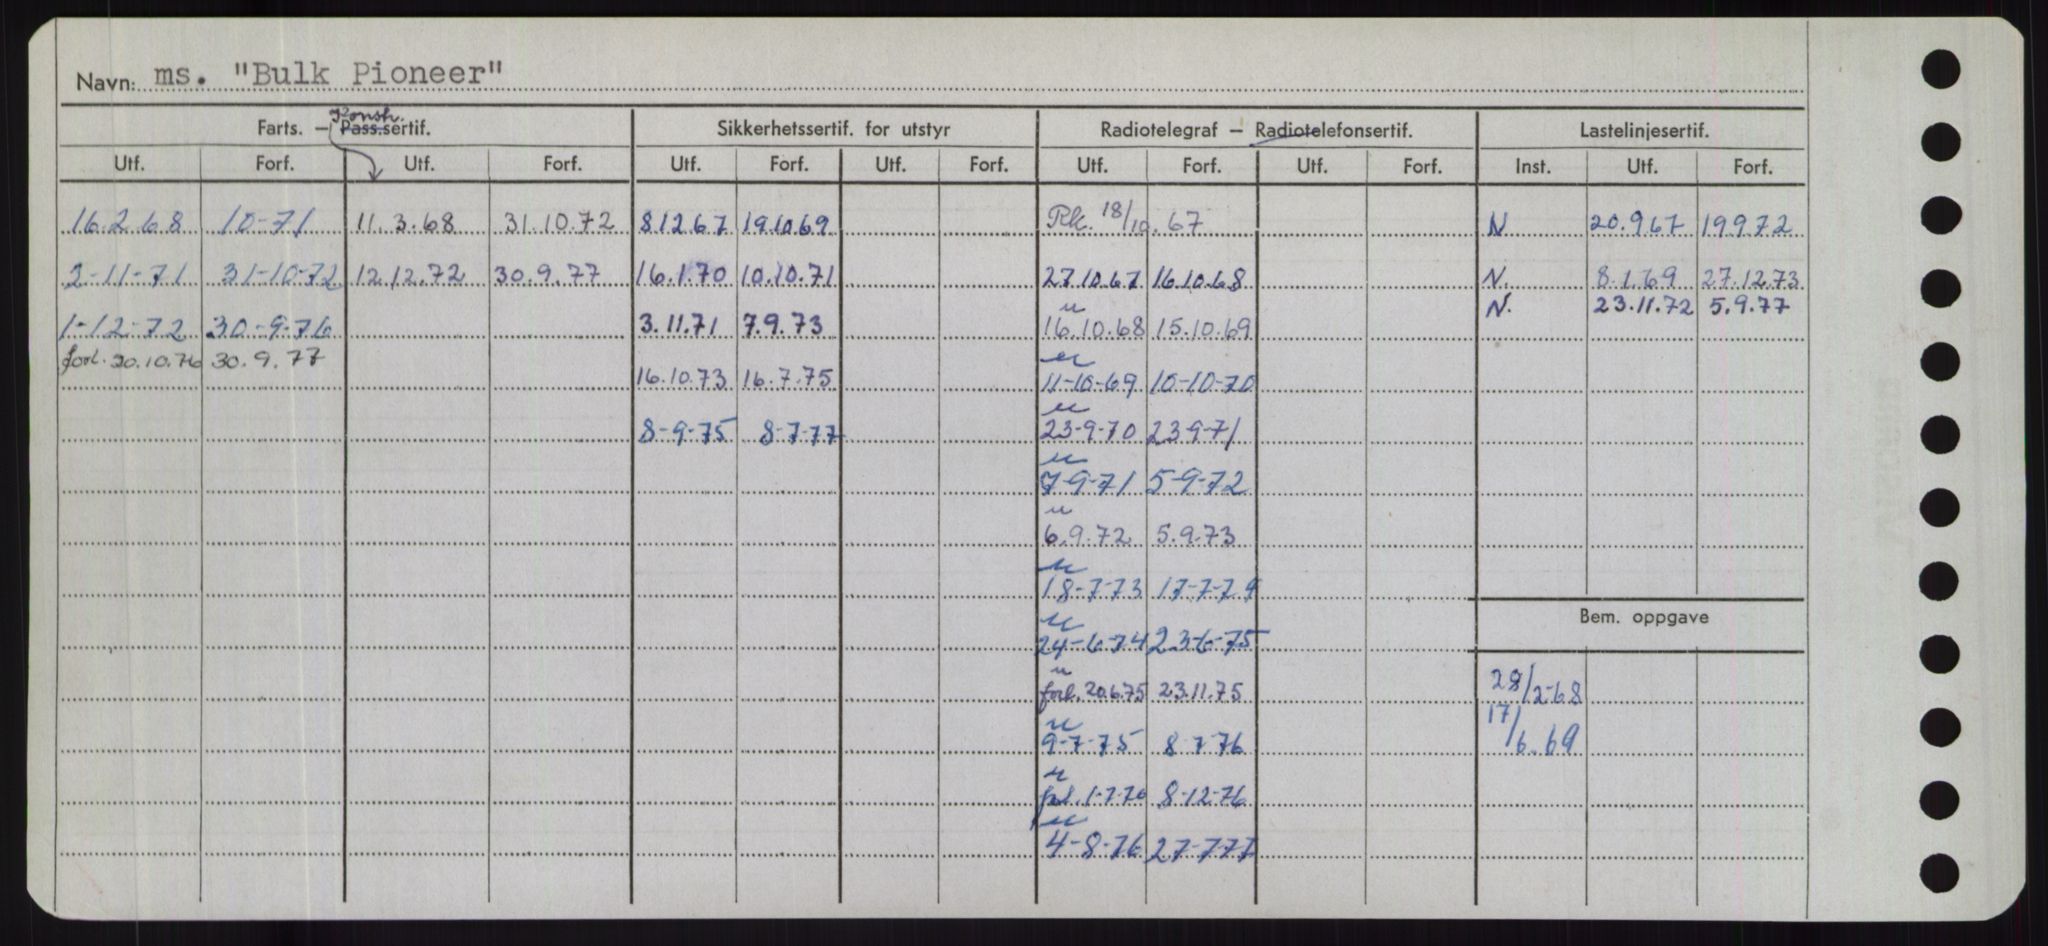 Navn: ms. "Bulk Pioneer"
Konstr.
Farts. — Pass.sertif. Sikkerhetssertif. for utstyr Radiotelegraf — Radiotelefonsertif. Lastelinjesertif.
Utf. Forf. Utf. Forf. Utf. Forf. Utf. Forf. Utf. Forf. Utf. Forf. Inst. Utf. Forf.
16.2.68 10-71 11.3.68 31.10.72 8.12.67 19.10.69 Rk. 18/10.67 N 20.9.67 19.9.72
2-11-71 31-10-72 12.12.72 30.9.77 16.1.70 10.10.71 27.10.67 16.10.68 N. 8.1.69 27.12.73
N. 23.11.72 5.9.77
u
1-12-72 30-9-76 3.11.71 7.9.73 16.10.68 15.10.69
forl. 20.10.76 30.9.77
u
16.10.73 16.7.75 11-10-69 10-10-70
u
8-9-75 8-7-77 23-9-70 23-9-71
u
7-9-71 5-9-72
u
6.9.72 5.9.73
u
18-7-73 17-7-74
Bem. oppgave
u
24-6-74 23-6-75
u
forl. 20.6.75 23.11.75 28/2-68
u
9-7-75 8-7-76 17/6.69
u
forl. 1-7-76 8-12-76
u
4-8-76 27-7-77